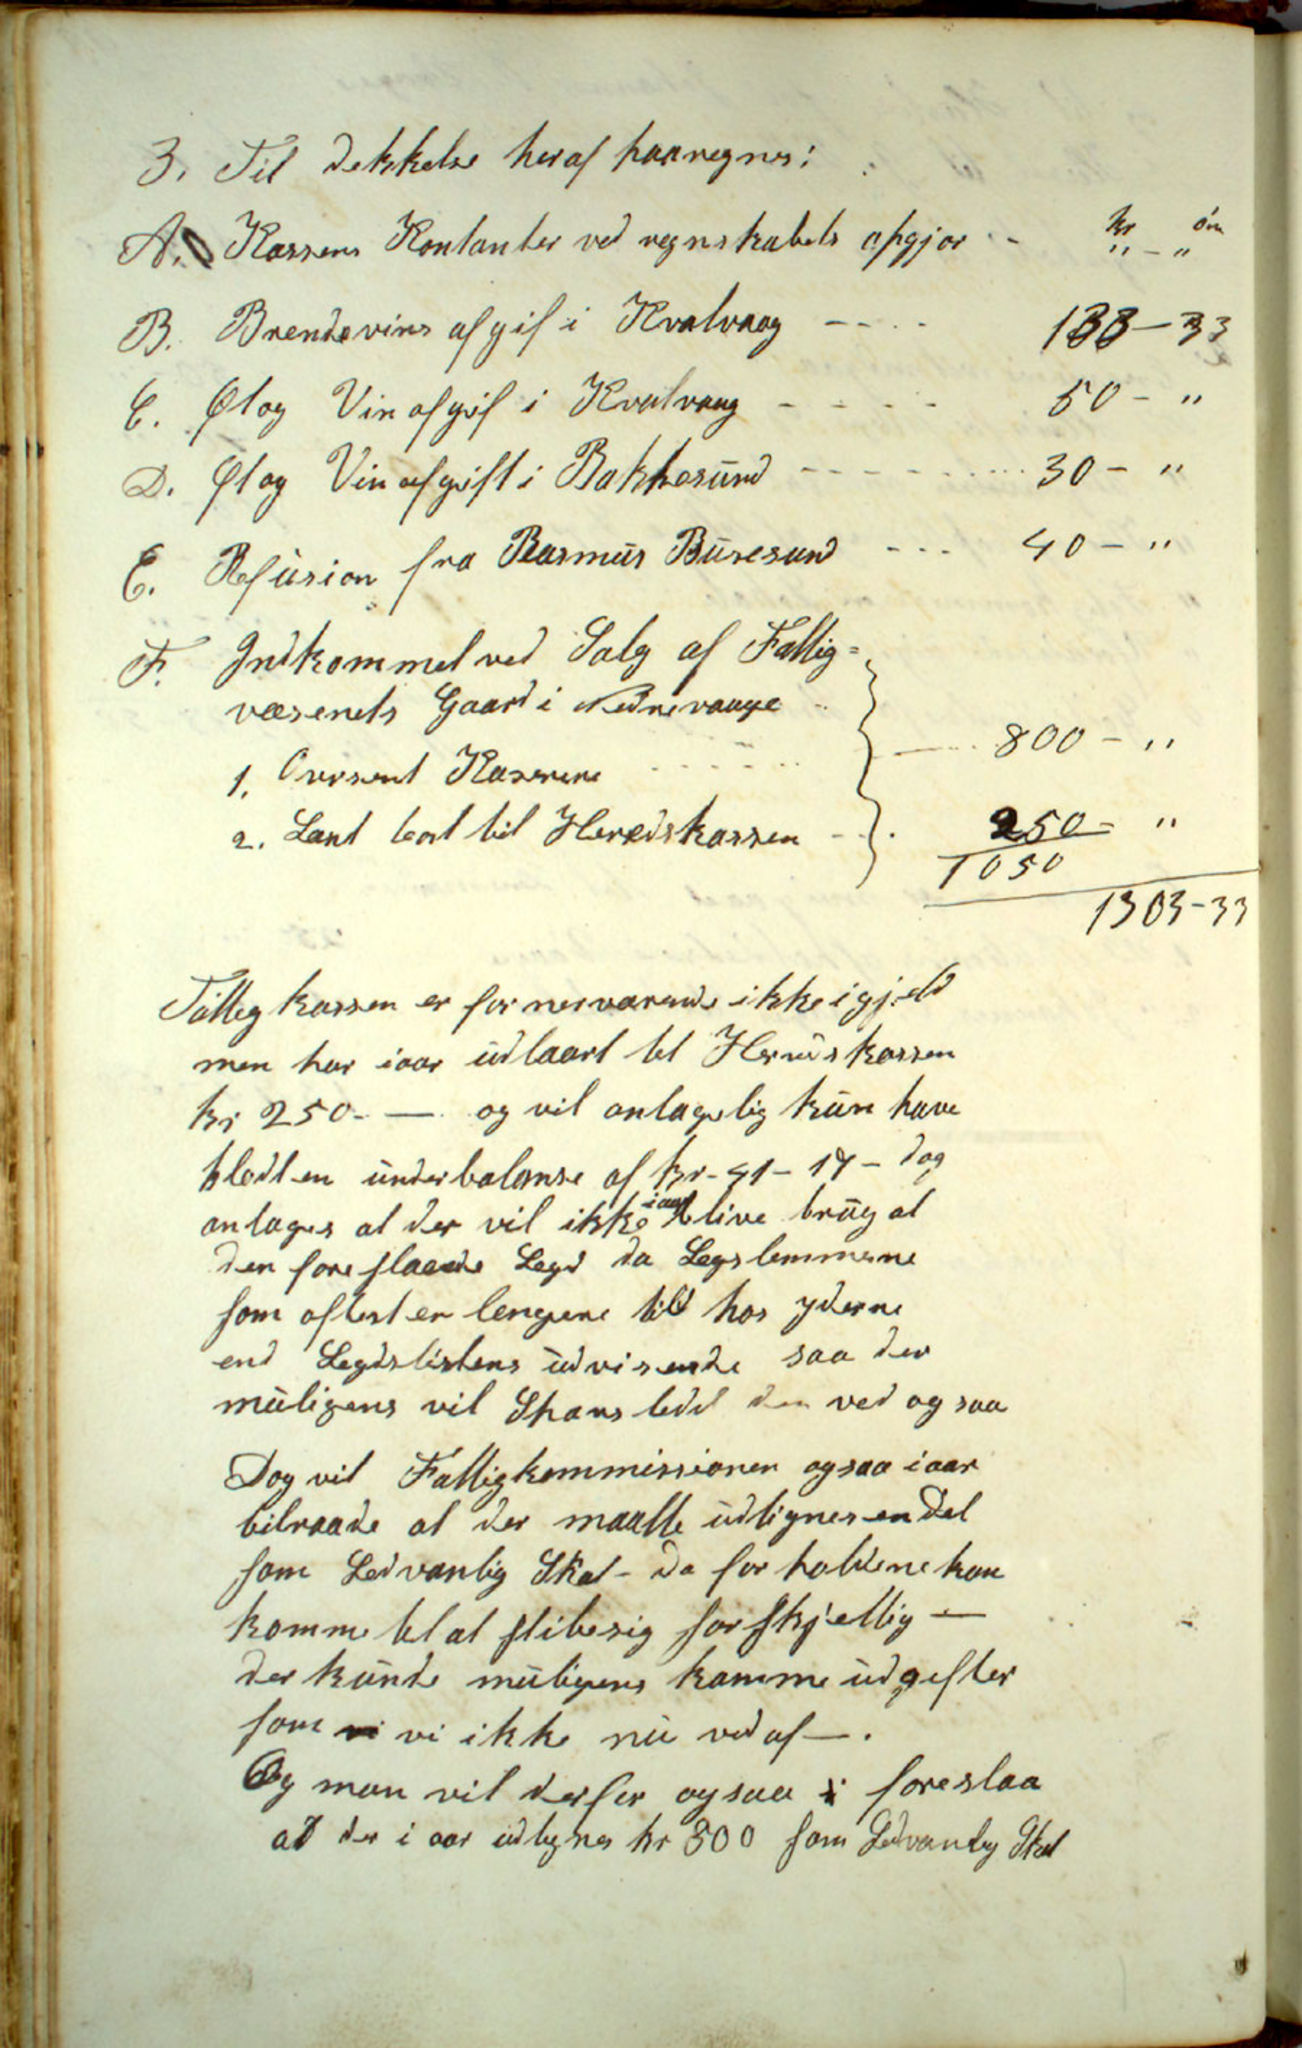 3. Til dekkelse heraf paaregnes:
kr øre
A. Kassens Kontanter ved regnskabets opgjør - " - "
B. Brendevins afgif i Kvalvaag - - - - 133 - 33
C. Øl og Vin afgif i Kvalvaag - - - - - 50 - "
D. Øl og Vin afgift i Bakkesund - - - - - - 30 - "
E. Refusion fra Rasmus Buresund - - - 40 - "
F. Indkommet ved Salg af Fattig=
væsenets Gaard i Nednevaage
1. Oversent Kaserere - - - - - 800 - "
2. Lant bort til Heredskassen - - 250 - "
1050
1303-33
Fattigkassen er for nerværende ikke i gjeld
men har iaar udlaant til Heredskassen
kr 250 - — og vil antagelig kun have
hledt en underbalanse af kr - 41 - 17 - dog
antages at der vil ikke iaar blive brug al
den foreslaaede Legd da Legslemmerne
som oftest er lengere tid hos yderne
end Legdslistens udvisende saa der
muligens vil Spares ledt den ved ogsaa
Dog vil Fattigkommissionen ogsaa iaar
tilraade at der maatte udlignes en Del
som Sedvanlig Skat - da forholdene kan
komme til at stille sig forskjellig —
der kunde muligens komme udgefter
som vi ikke nu ved af — .
Og man vil derfor ogsaa foreslaa
at der i aar udlignes kr 300 som Sedvanlig Skat